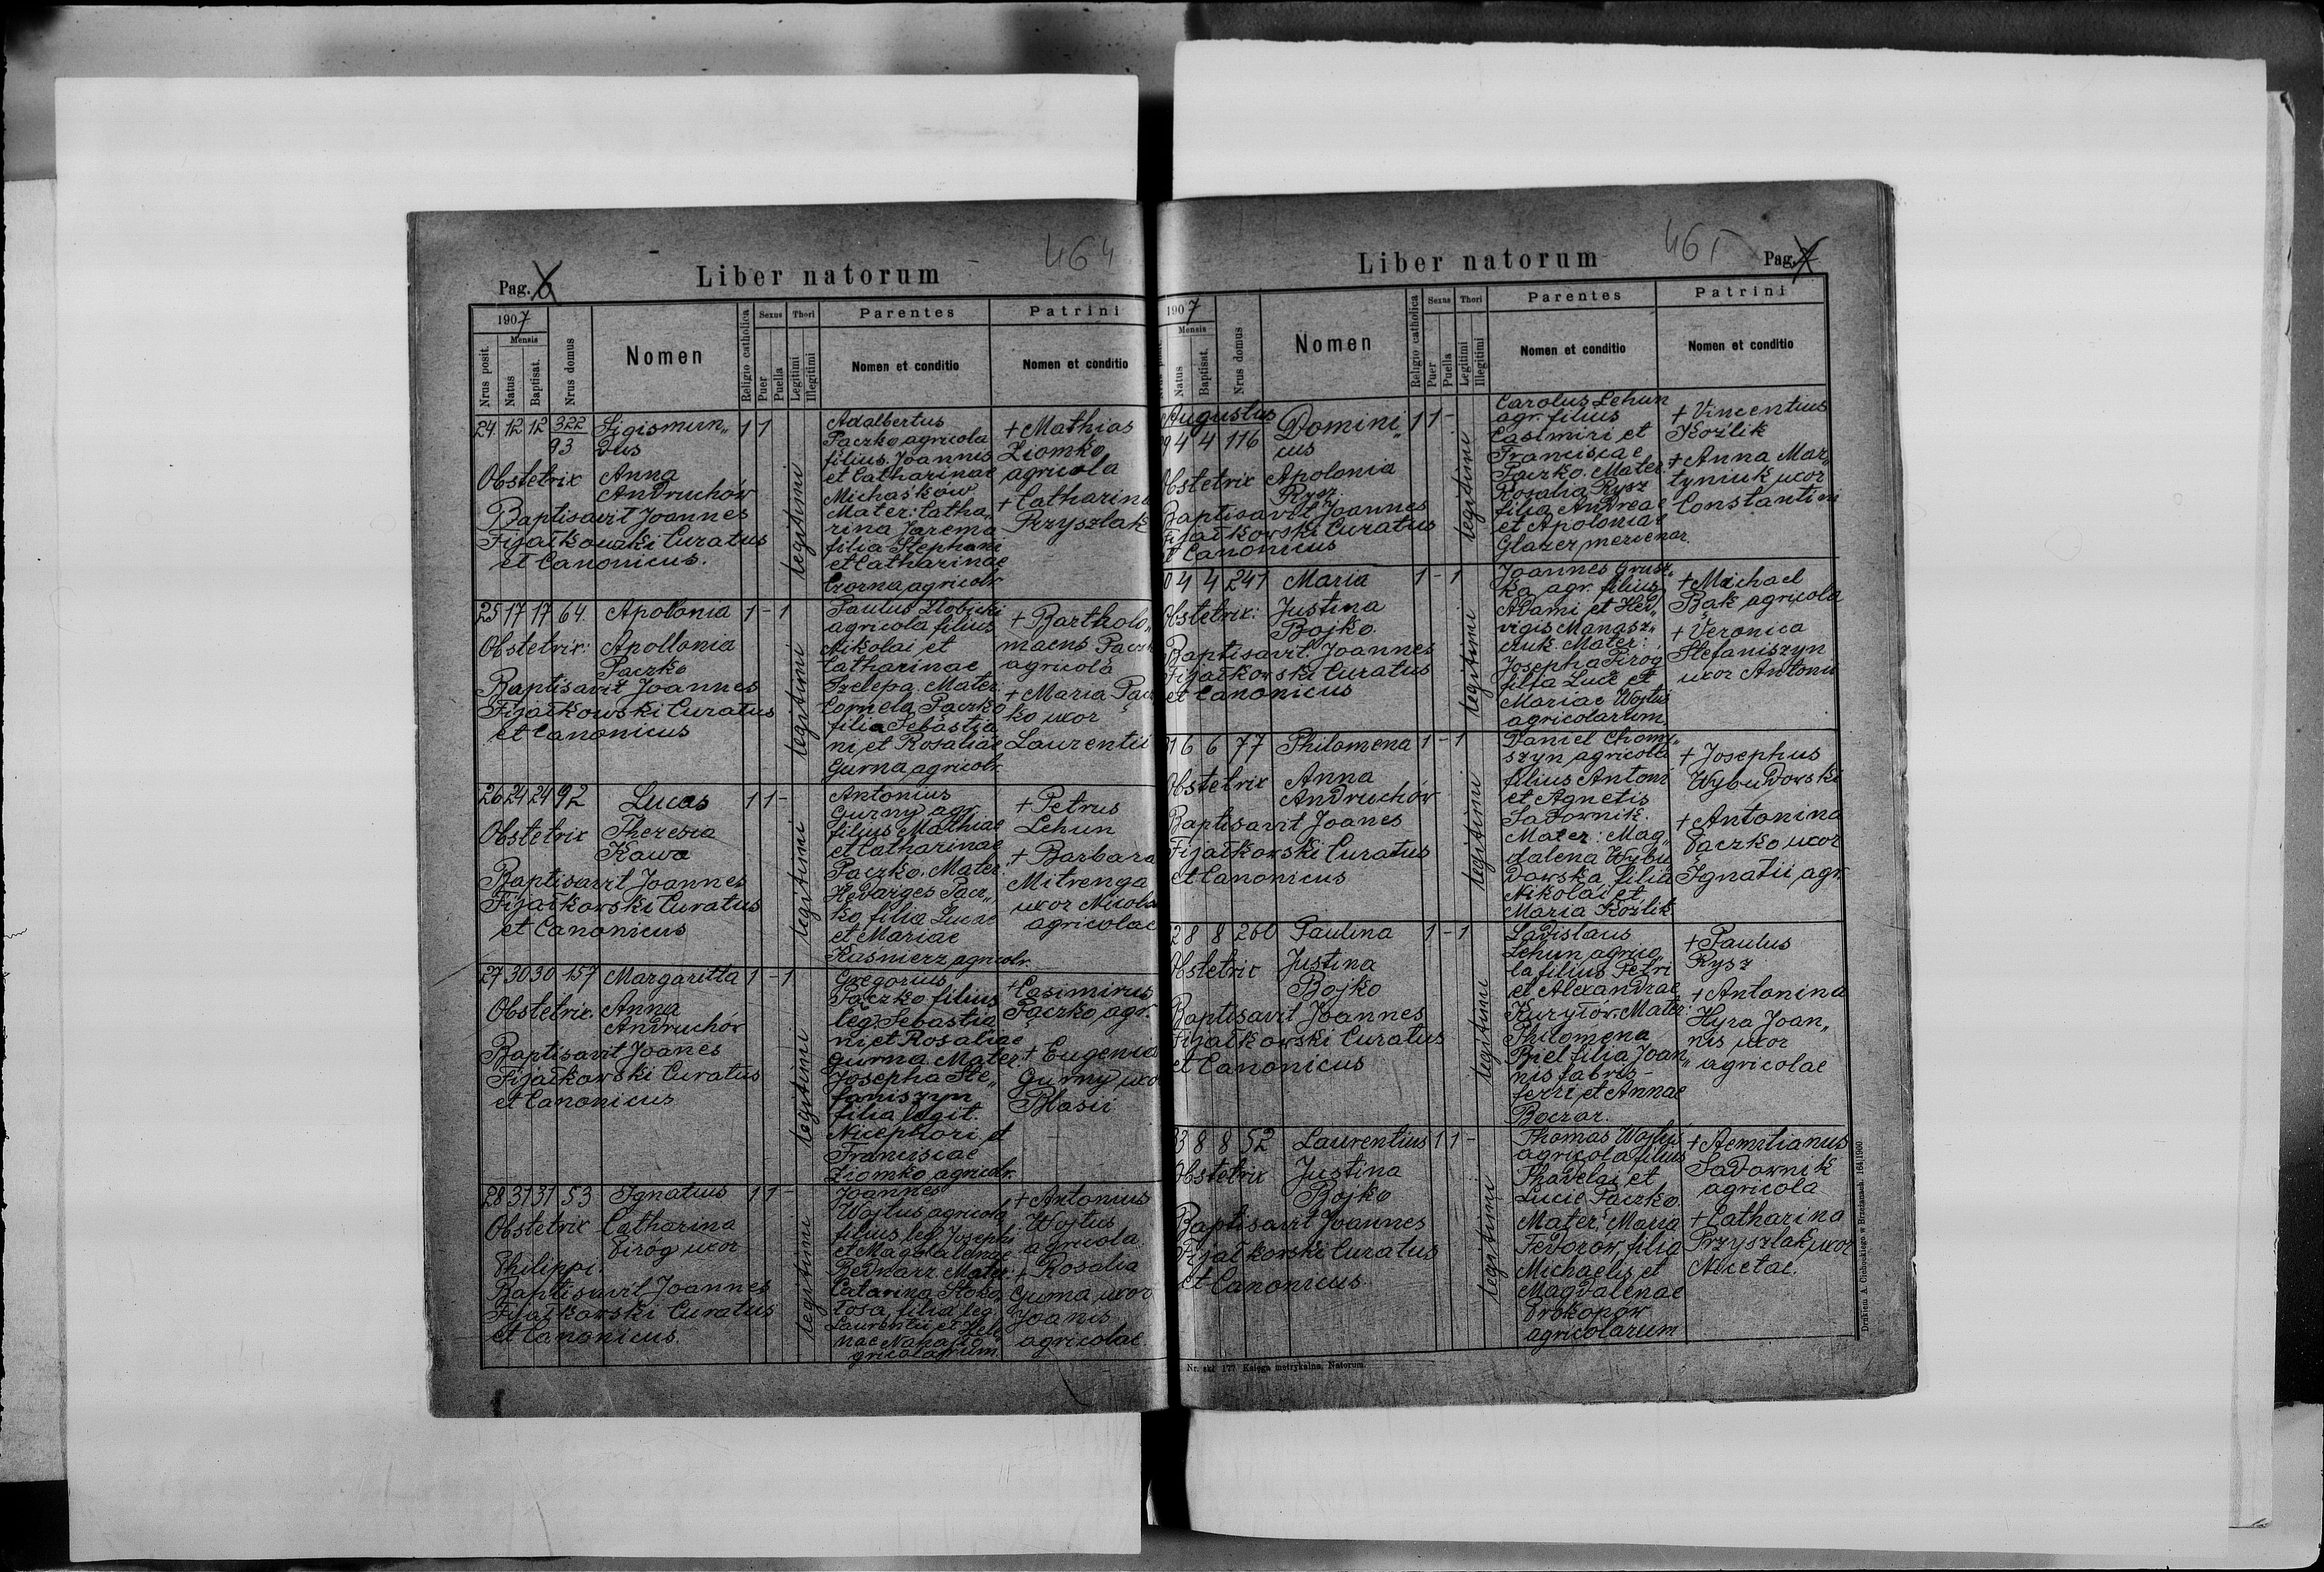 464
Pag. 6
Liber natorum
1907
Mensis
Nrus posit.
Natus
Baptisat.
Nrus domus
Nomen
Religio catholica
Sexus
Puer
Puella
Thori
Legitimi
Illegitimi
Parentes
Nomen et conditio
Patrini
Nomen et conditio
24 12 12 322
93
Sigismun„
dus
1 1
Obstetrix Anna
Andruchów
Baptisavit Joannes
Fijałkowski Curatus
et Canonicus.
legitimi
Adalbertus
Paczko agricola
filius Joannis
et Catharinae
Michaśków
Mater: Catha„
rina Jarema
filia Stephani
et Catharinae
Czorna, agricolr.
+ Mathias
Ziomko
agricola
+ Catharina
Przyszlak
25 17 17 64. Apolonia 1 - 1
Obstetrix: Apollonia
Paczko
Baptisavit Joannes
Fijałkowski Curatus
et Canonicus
legitimi
Paulus Złobicki
agricola filius
Nikolai et
Catharinae
Szelepa. Mater:
Comela Paczko
filia Sebastia
ni et Rosaliae
Gurna, agricolr.
+ Bartholo„
maeus
agricola
+ Maria
ko uxor
Laurentii
26 24 24 92 Lucas 1 1 -
Obstetrix Theresia
Kawa
Baptisavit Joannes
Fijałkowski Curatus
et Canonicus
legitimi
Antonius
Gurny agr.
filius Mathiae
et Catharinae
Paczko. Mater:
Hedviges Pacz„
ko, filia Lucae
et Mariae
Kaśnierz, agricolr.
+ Petrus
Lehun
+ Barbara
Mitrenga
uxor
agricolae
27 30 30 157 Margaretta 1 - 1
Obstetrix. Anna
Andruchów
Baptisavit Joanes
Fijałkowski Curatus
et Canonicus
legitimi
Gregorius
Paczko filius
leg. Sebastia
ni et Rosaliae
Gurna. Mater:
Josepha Ste„
faniszyn
filia legit.
Nicephori et
Franciscae
Ziomko, agricolr.
+ Casimirus
Paczko, agr.
+ Eugenia
Gurny
Blasii
28 31 31 53 Ignatius 1 1 -
Obstetrix Catharina
Piróg uxor
Philippi
Baptisavit Joannes
Fijałkowski Curatus
et Canonicus.
legitimi
Joannes
Wojtus agricola
filius leg. Josephi
et Magdalenae
Bednarz. Mater:
Catarina Stoko„
łosa, filia leg.
Laurentii et Hele„
nae
gricolarum.
+ Antonius
Wojtus
agricola
+ Rosalia
Gurna uxor
Joanis
agricolae
465
Pag. 7
Liber natorum
1907
Mensis
Natus
Baptisat.
Nrus domus
Nomen
Religio catholica
Sexus
Puer
Puella
Thori
Legitimi
Illegitimi
Parentes
Nomen et conditio
Patrini
Nomen et conditio
Augustus
9 4 4 116 Domini„
cus
1 1 -
Obstetrix Apolonia
Rysz.
Baptisavit Joannes
Fijałkowski Curatus
et Canonicus
legitimi
Carolus Lehun
agr. filius
Casimiri et
Franciscae
Paczko. Mater:
Rosalia Rysz
filia Andreae
et Apoloniae
Glazer, mercenar.
+ Vincentius
Koźlik
+ Anna Mar„
tyniuk uxor
Constantini
0 4 4 241 Maria 1 - 1
Obstetrix: Justina
Bojko.
Baptisavit: Joannes
Fijałkowski Curatus
et Canonicus
legitimi
Joannes Grusz„
ka, agr. filius
Adami et Hed„
vigis Manasz„
czuk. Mater:
Josepha Piróg
filia Lucae et
Mariae Wojtus
agricolarum.
+ Michael
Bąk agricola
+ Veronica
Stefaniszyn
uxor Antonii
1 6 6 77 Philomena 1 - 1
Obstetrix Anna
Andruchów
Baptisavit Joanes
Fijałkowski Curatus
et Canonicus
legitimi
Daniel Chomy„
szyn agricola
filius Antoni
et Agnetis
Sadownik.
Mater: Mag„
dalena Wybu
dowska filia
Nikolai et
Maria Koźlik
+ Josephus
Wybudowski
+ Antonina
Paczko uxor
Ignatii, agr.
2 8 8 260 Paulina 1 - 1
Obstetrix Justina
Bojko
Baptisavit Joannes
Fijałkowski Curatus
et Canonicus
legitimi
Ladislaus
Lehun, agrico„
la, filius Petri
et Alexandrae
Kuryłów. Mater:
Philomena
Biel filia Joan„
nis fabris-
ferri, et Annae
Boczar.
+ Paulus
Rysz
+ Antonina
Hyra Joan„
nis uxor
agricolae
33 8 8 52 Laurentius 1 1 -
Obstetrix Justina
Bojko
Baptisavit Joannes
Fijałkowski Curatus
et Canonicus
legitimi
Thomas Wojtus
agricola filius
Thadelai et
Lucie Paczko.
Mater: Maria
Fedorów, filia
Michaelis et
Magdalenae
Prokopow
agricolarum
+ Aemilianus
Sadownik
agricola
+ Catharina
Przyszlak, uxor
Nicetae.
Nr. skł. 177 Księga metrykalna, Natorum.
Drukiem A. Cichockiego w Brzeżanach. 164|1900